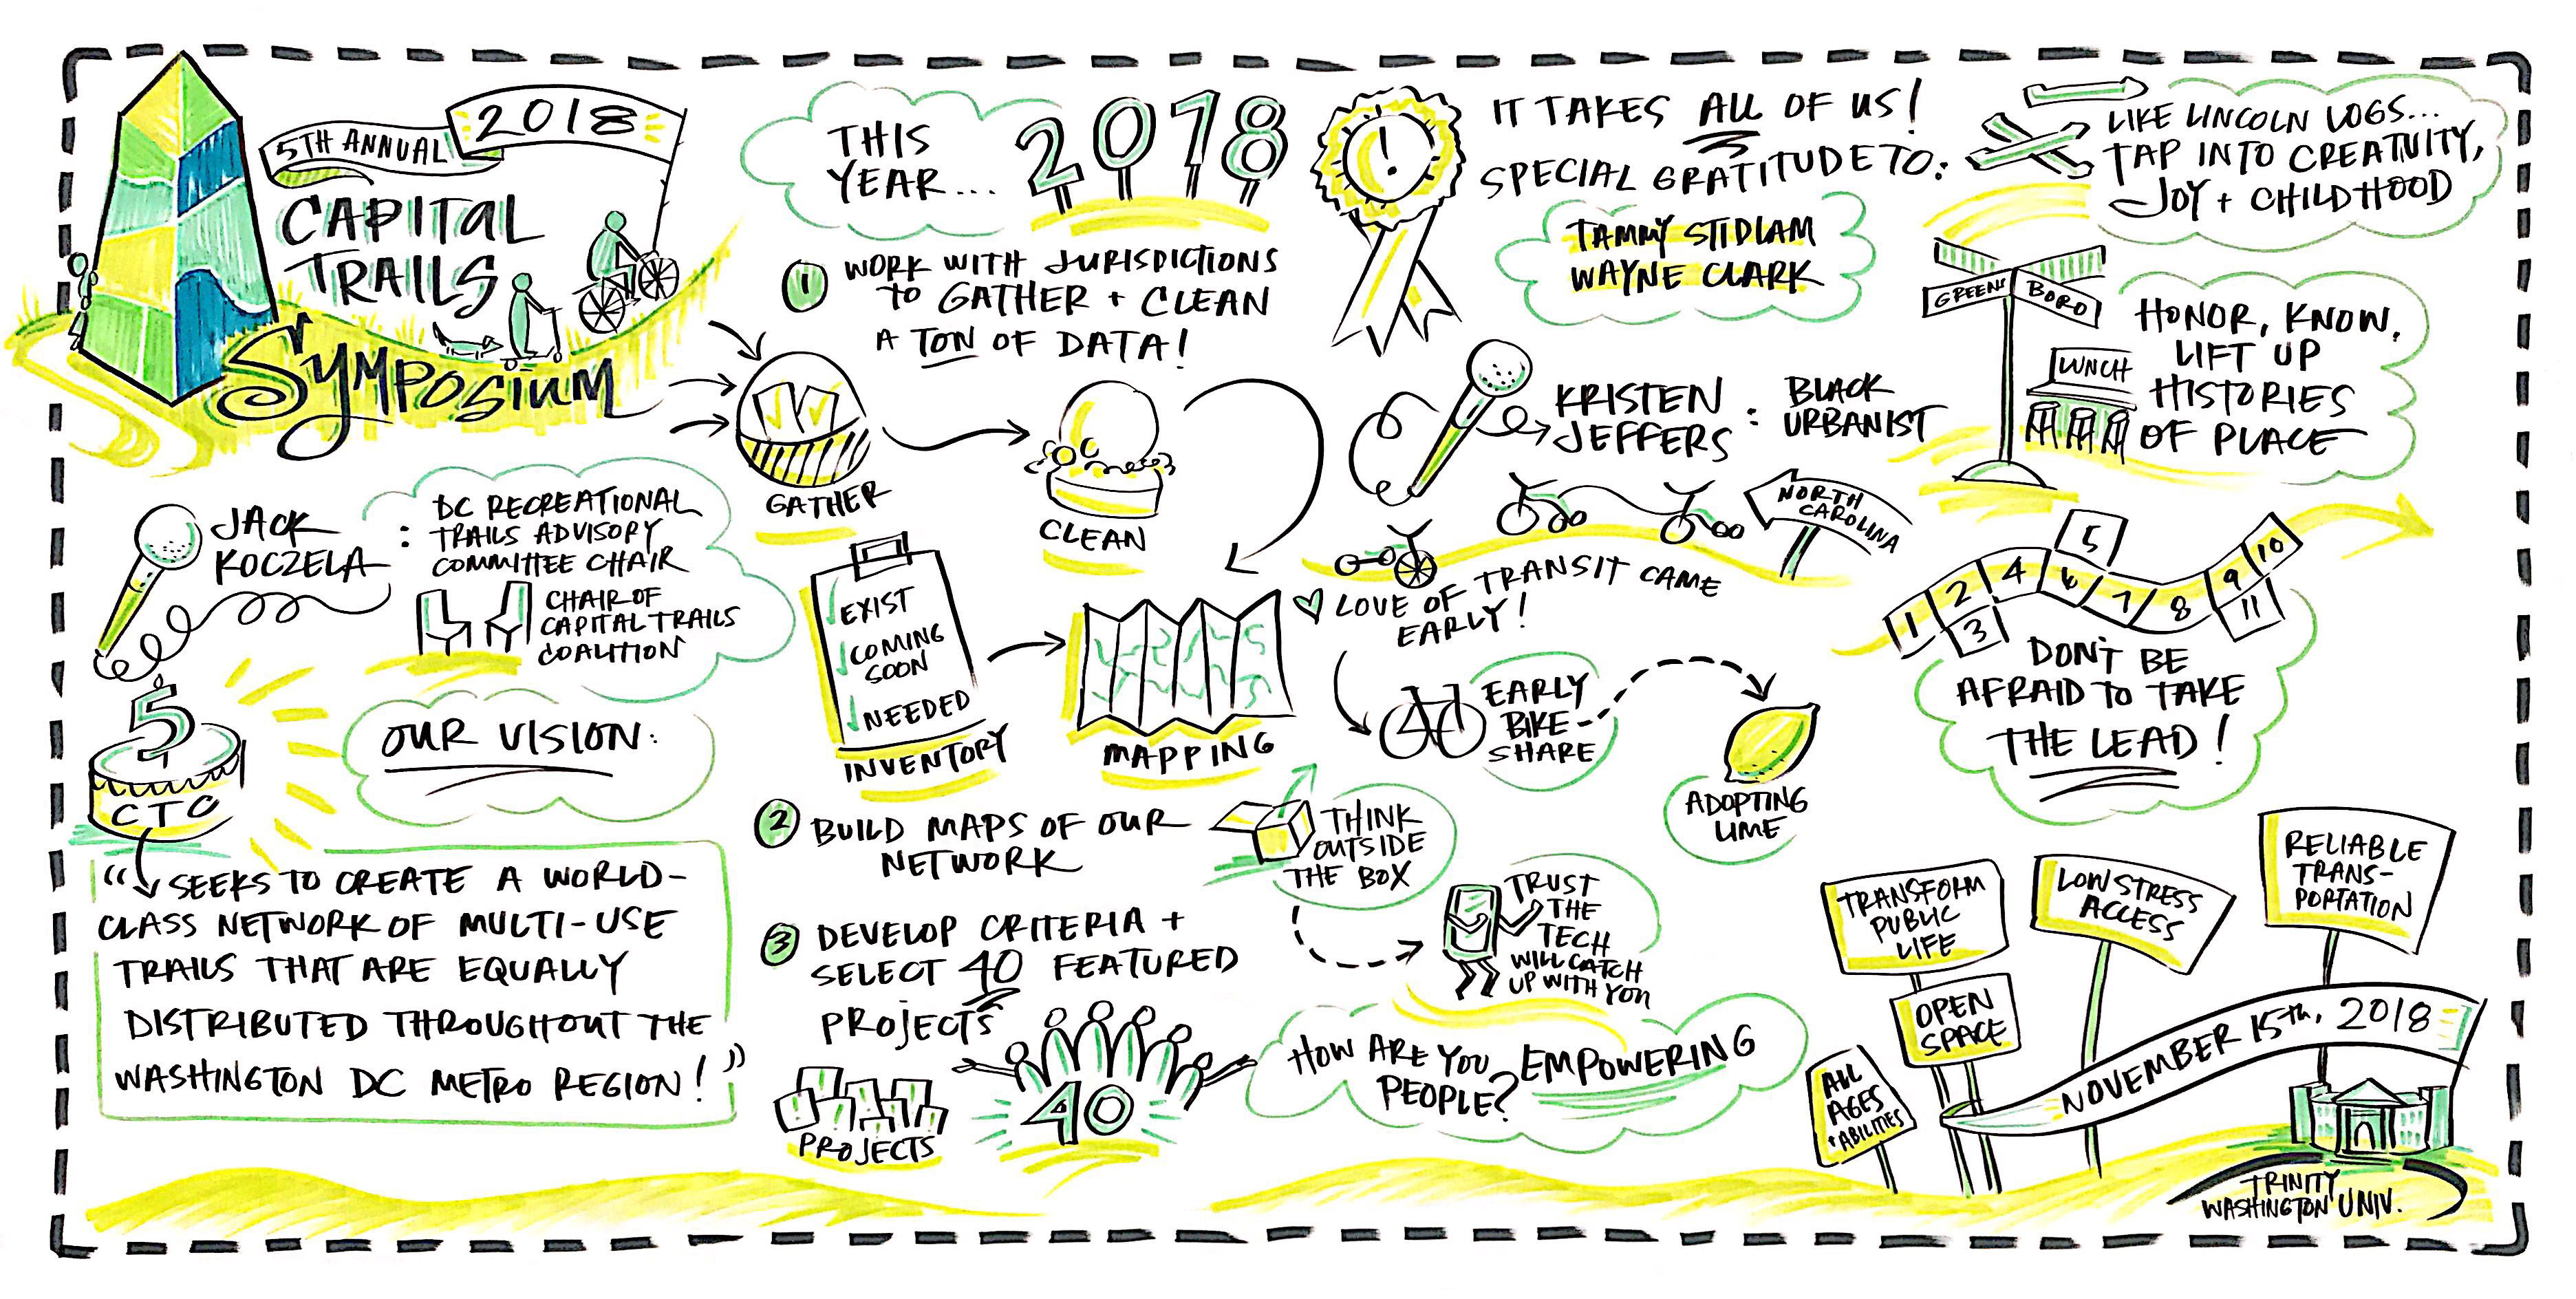 5TH ANNUAL
2018
CAPITAL
TRAILS
SYMPOSIUM
JACK
KOCZELA
:
DC RECREATIONAL
TRAILS ADVISORY
COMMITTEE CHAIR
CHAIR OF
CAPITAL TRAILS
COALITION
5
CTC
OUR VISION:
"SEEKS TO CREATE A WORLD-
CLASS NETWORK OF MULTI-USE
TRAILS THAT ARE EQUALLY
DISTRIBUTED THROUGHOUT THE
WASHINGTON DC METRO REGION!"
THIS
YEAR...
2018
1 WORK WITH JURISDICTIONS
TO GATHER + CLEAN
A TON OF DATA!
GATHER
CLEAN
EXIST
COMING
SOON
NEEDED
INVENTORY
MAPPING
2 BUILD MAPS OF OUR
NETWORK
3 DEVELOP CRITERIA +
SELECT 40 FEATURED
PROJECTS
PROJECTS
40
!
IT TAKES ALL OF US!
SPECIAL GRATITUDE TO:
TAMMY STIDLAM
WAYNE CLARK
KRISTEN
JEFFERS
:
BLACK
URBANIST
NORTH
CAROLINA
LOVE OF TRANSIT CAME
EARLY!
EARLY
BIKE-
SHARE
ADOPTING
LIME
THINK
OUTSIDE
THE BOX
TRUST
THE
TECH
WILL CATCH
UP WITH YOU
HOW ARE YOU EMPOWERING
PEOPLE?
LIKE LINCOLN LOGS...
TAP INTO CREATIVITY,
JOY + CHILDHOOD
GREENS
BORO
LUNCH
HONOR, KNOW,
LIFT UP
HISTORIES
OF PLACE
1 2 3 4 5 6 7 8 9 10 11
DON'T BE
AFRAID TO TAKE
THE LEAD!
TRANSFORM
PUBLIC
LIFE
LOW STRESS
ACCESS
RELIABLE
TRANS-
PORTATION
OPEN
SPACE
ALL
AGES
+ ABILITIES
NOVEMBER 15th, 2018
TRINITY
WASHINGTON UNIV.